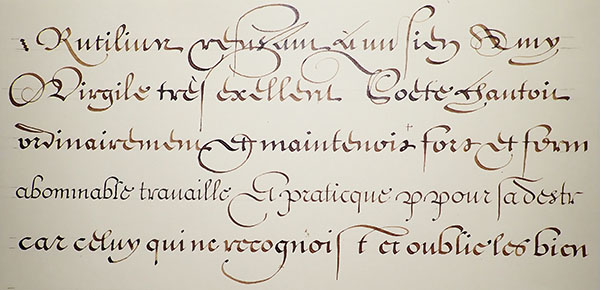 Rutilius refusant à un sien Amy
Virgile très exellent Poete chantoit
ordinairement Et maintenoit fort et ferm
abominable travaille Et praticque p pour sa destr
car celuy qui ne recognoist et oublie les bien